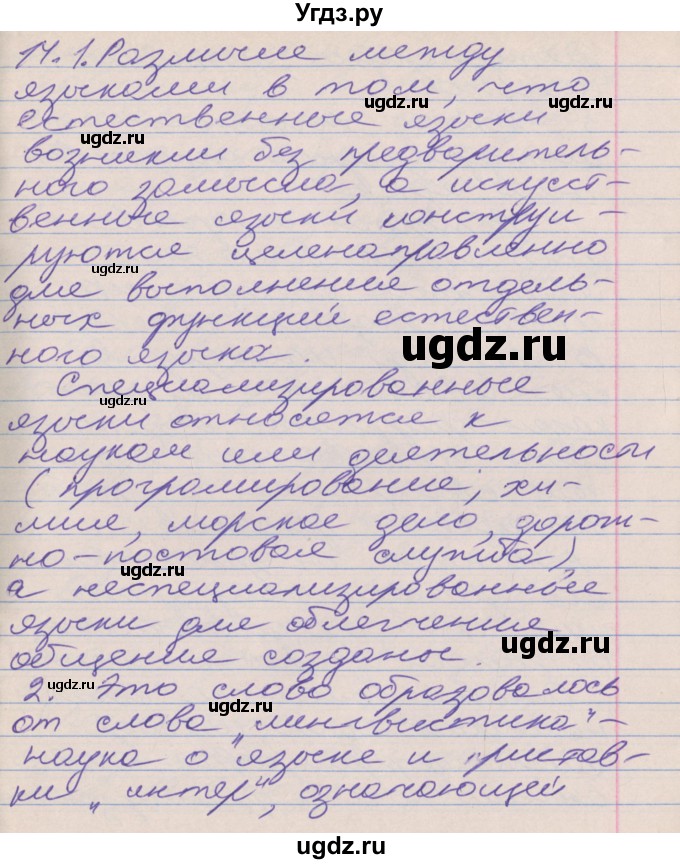 Угдз.ру
14.1. Различие между
языками в том, что
естественные языки
возникли без предваритель-
ного замысла, а искусст-
венные языки констрúи-
руются целенаправленно
для выполнения отдель-
ных функций естествен-
ного языка.
Специализированные
языки относятся к
наукам или деятельности
(програмирование, хи-
мия, морское дело, дорож-
но-постовая служба),
а неспециализированные
языки для облегчения
общения созданы.
2. Это слово образовалось
от слова "лингвистика" -
наука о языке и пристав-
ки "интер", означающей
ugdz.ru
ugdz.ru
ugdz.ru
ugdz.ru
ugdz.ru
ugdz.ru
ugdz.ru
ugdz.ru
ugdz.ru
ugdz.ru
ugdz.ru
ugdz.ru
ugdz.ru
ugdz.ru